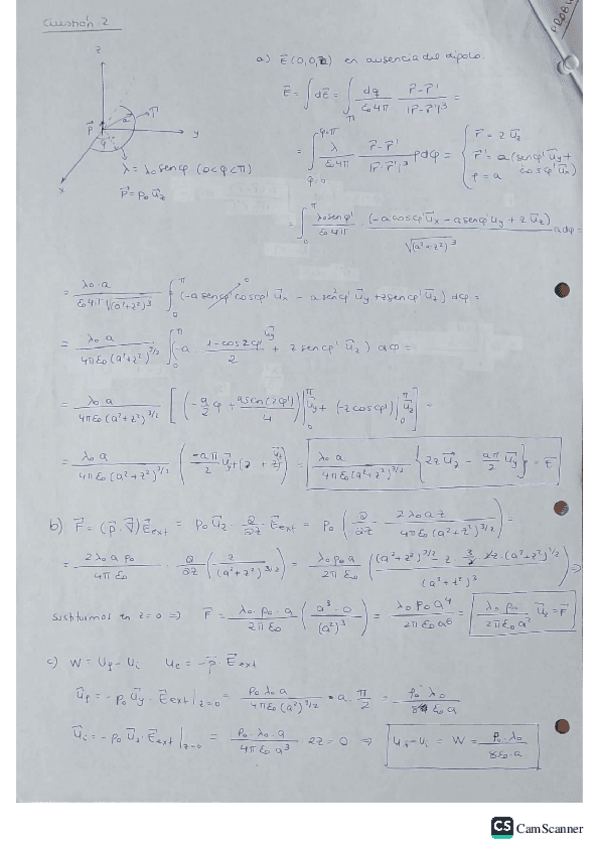 Cuestión 2
PROBL
z
y
x
P⃗
a
φ
Γ
λ = λ₀ senφ (0<φ<π)
P⃗ = p₀ u⃗z
a) E⃗ (0,0,z) en ausencia del dipolo.
E⃗ = ∫ dE⃗ = ∫_Γ dq/(ε₀4π) (r⃗-r⃗')/|r⃗-r⃗'|³ =
= ∫_{φ=0}^{φ=π} λ/(ε₀4π) (r⃗-r⃗')/|r⃗-r⃗'|³ ρdφ = { r⃗ = z u⃗z
r⃗' = a(senφ' u⃗y + cosφ' u⃗x)
ρ = a
= ∫₀^π λ₀senφ'/(ε₀4π) (-a cosφ' u⃗x - a senφ' u⃗y + z u⃗z)/√(a²+z²)³ a dφ =
= λ₀·a/(ε₀4π√(a²+z²)³) ∫₀^π (-a senφ' cosφ' u⃗x - a sen²φ' u⃗y + z senφ' u⃗z) dφ =
= λ₀ a/(4πε₀(a²+z²)^{3/2}) ∫₀^π (-a · (1-cos2φ')/2 u⃗y + z senφ' u⃗z) dφ =
= λ₀ a/(4πε₀(a²+z²)^{3/2}) [ (-a/2 φ + a sen(2φ')/4)|₀^π u⃗y + (-z cosφ')|₀^π u⃗z ] =
= λ₀ a/(4πε₀(a²+z²)^{3/2}) (-aπ/2 u⃗y + (z + z) u⃗z) = λ₀ a/(4πε₀(a²+z²)^{3/2}) {2z u⃗z - aπ/2 u⃗y} = E⃗
b) F⃗ = (p⃗·∇⃗) E⃗ext = p₀ u⃗z · ∂/∂z · E⃗ext = p₀ (∂/∂z · 2λ₀ a z/(4πε₀(a²+z²)^{3/2})) =
= 2λ₀ a p₀/(4πε₀) · ∂/∂z (z/(a²+z²)^{3/2}) = λ₀p₀a/(2πε₀) ((a²+z²)^{3/2} - z · 3/2 · 2z·(a²+z²)^{1/2})/(a²+z²)³ ⇒
sustituimos en z=0 ⇒ F⃗ = λ₀·p₀·a/(2πε₀) (a³-0)/(a²)³ = λ₀p₀a⁴/(2πε₀a⁶) = λ₀p₀/(2πε₀a²) u⃗z = F⃗
c) W = Uf - Ui Ue = -p⃗·E⃗ext
U⃗f = -p₀ u⃗y · E⃗ext|z=0 = p₀ λ₀ a/(4πε₀(a²)^{3/2}) · a · π/2 = p₀λ₀/(8ε₀a)
U⃗i = -p₀ u⃗z · E⃗ext|z=0 = p₀·λ₀·a/(4πε₀a³) · 2z = 0 ⇒ Uf - Ui = W = p₀·λ₀/(8ε₀·a)
CS CamScanner